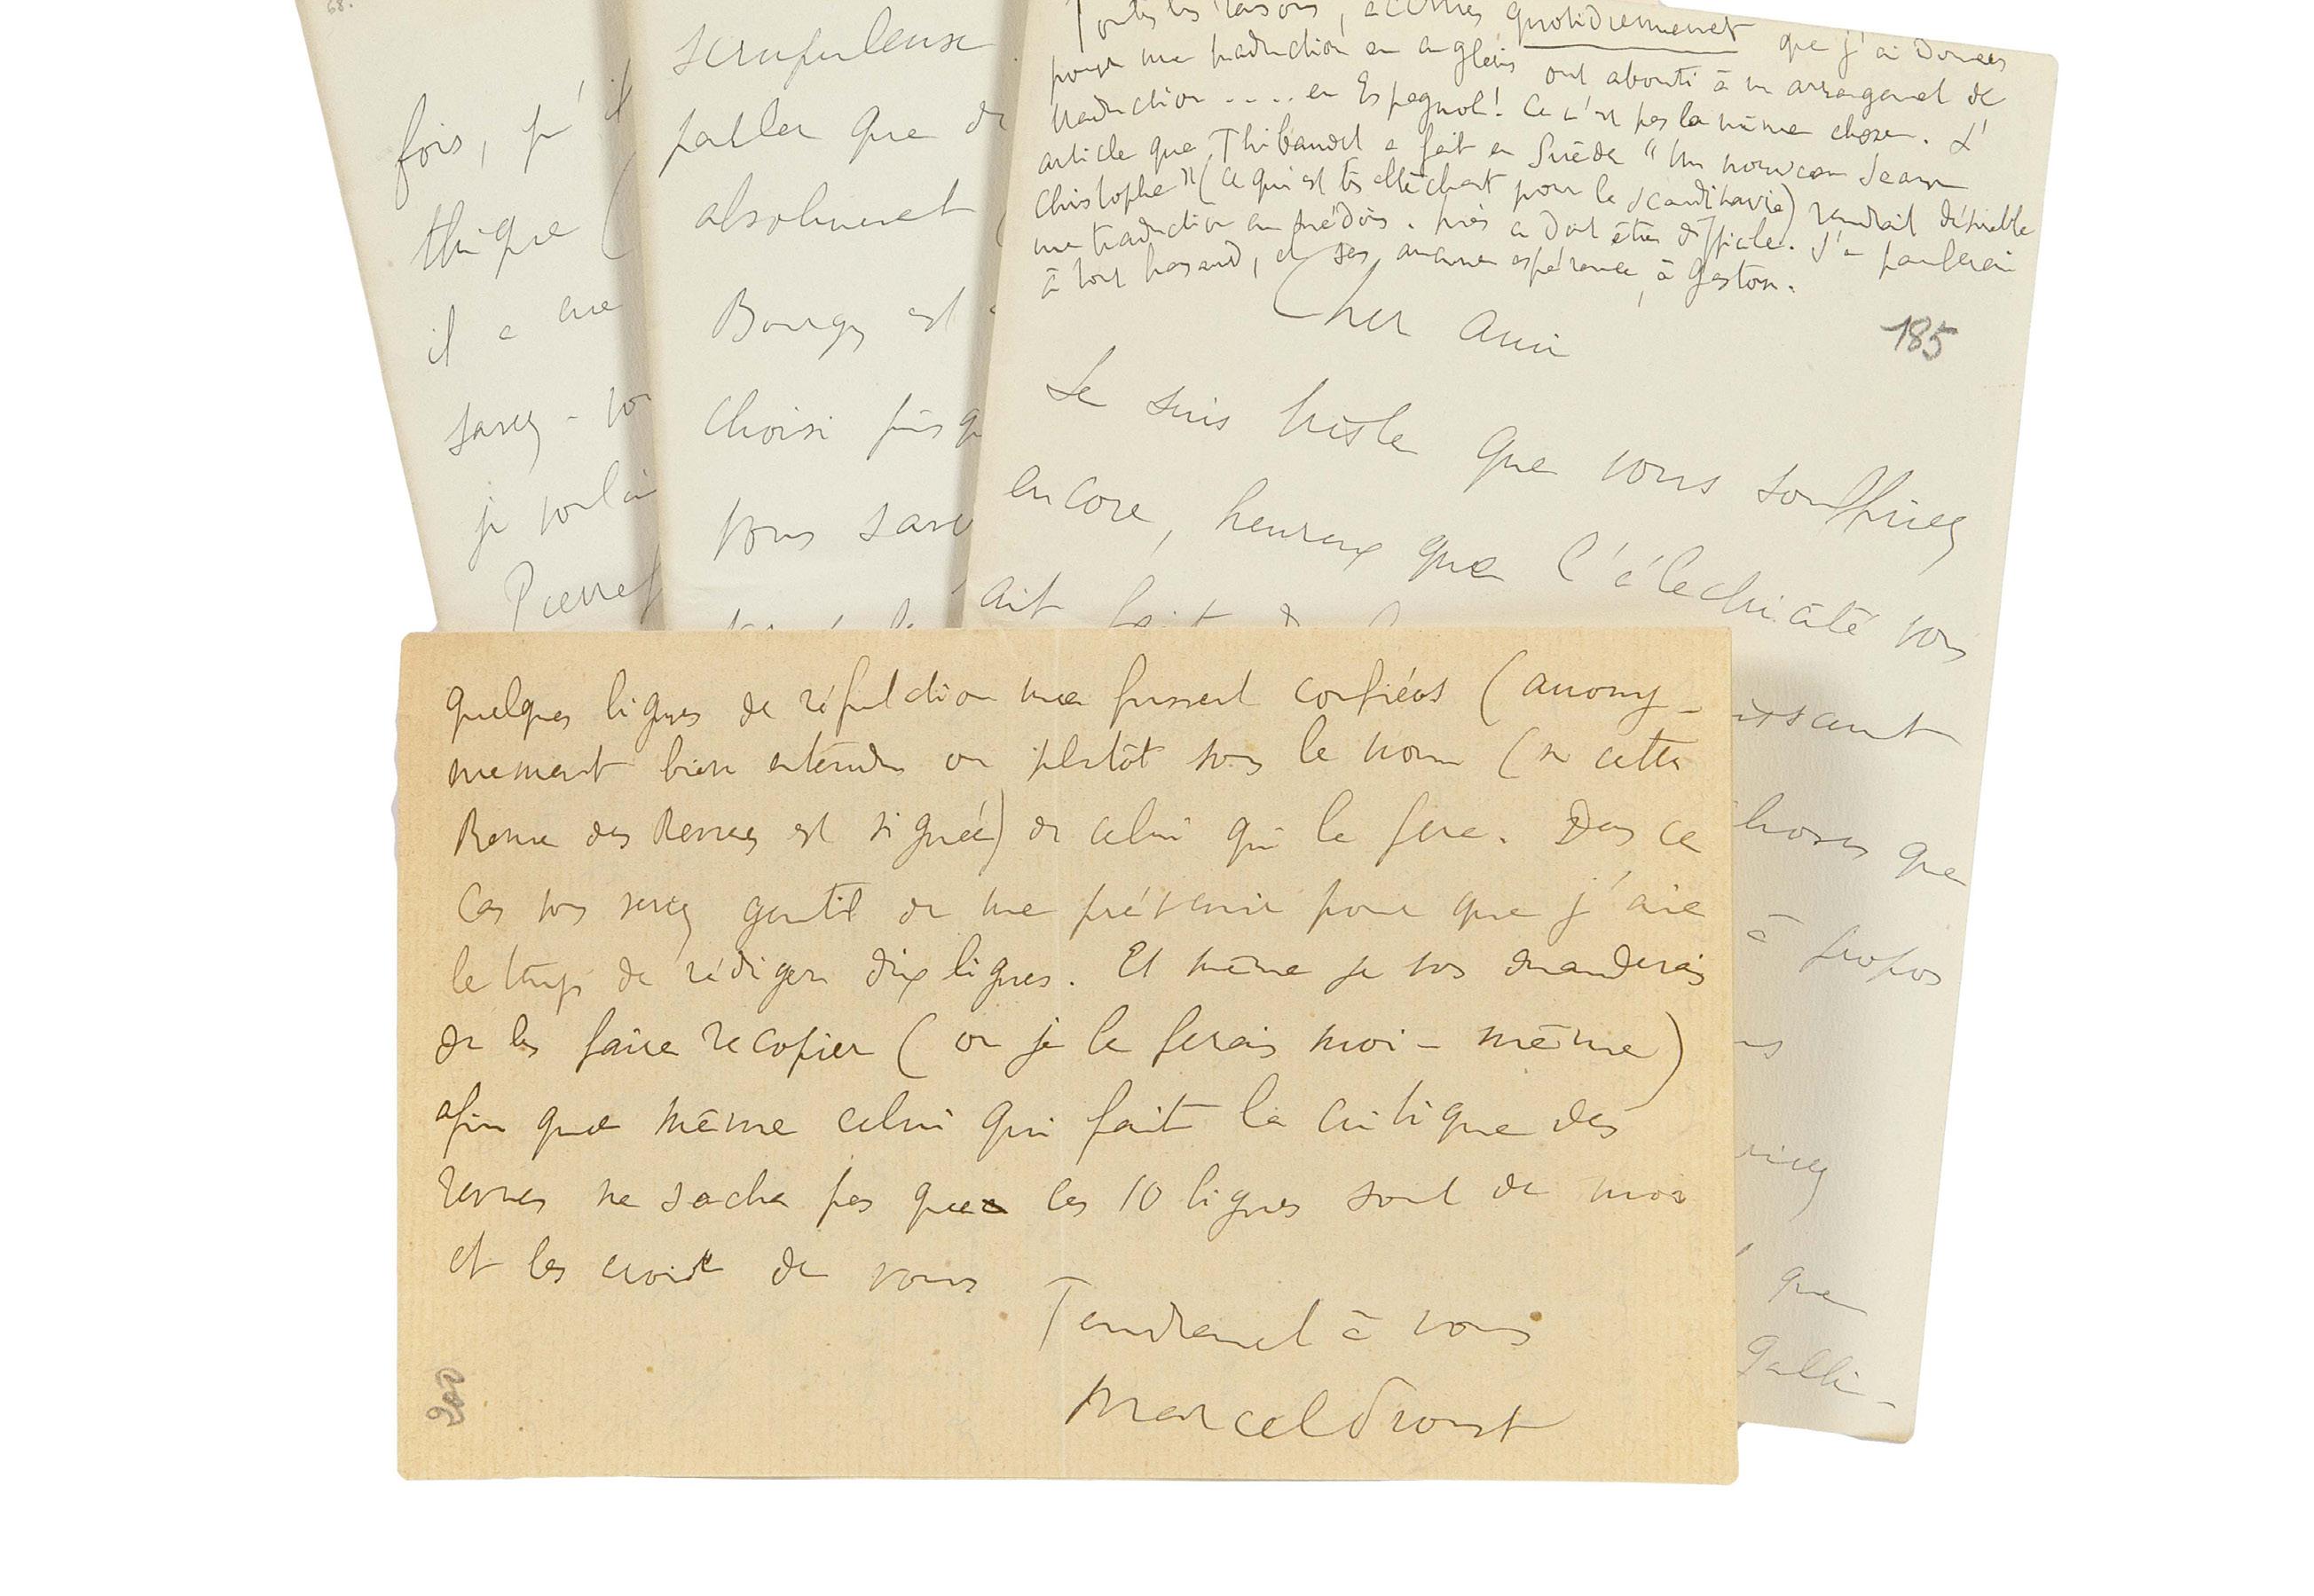 68.
fois, j'
thique (
il a eu
savez-vo
je voulai
Pierref
scrupuleuse
parler que de
absolument (
Bourges est
choisi puisq
vous save
Toutes les raisons, accrues quotidiennement que j'ai données
pour une traduction en anglais ont abouti à un arrangemet de
traduction .... en Espagnol! Ce n'est pas la même chose. L'
article que Thibaudet a fait en Suède "Un nouveau Jean
Christophe" (ce qui est très alléchant pour la Scandinavie) rendrait désirable
une traduction en suédois. Mais ce doit être difficile. J'en parlerai
à tout hasard, et sans aucune espérance, à Gaston.
Cher ami
185
Je suis triste que vous souffriez
encore, heureux que l'électricité vous
ait fait
issant
hoses que
à propos
ns
riez
que
Galli-
quelques lignes de réfutation me fussent confiées (anony-
mement bien entendu ou plutôt sous le nom (si cette
Revue des Revues est signée) de celui qui la fera. Dans ce
cas vous serez gentil de me prévenir pour que j'aie
le temps de rédiger dix lignes. Et même je vous demanderais
de les faire recopier (ou je le ferais moi-même)
afin que même celui qui fait la critique des
revues ne sache pas que ces 10 lignes sont de moi
et les croie de vous
Tendremet à vous
Marcel Proust
200